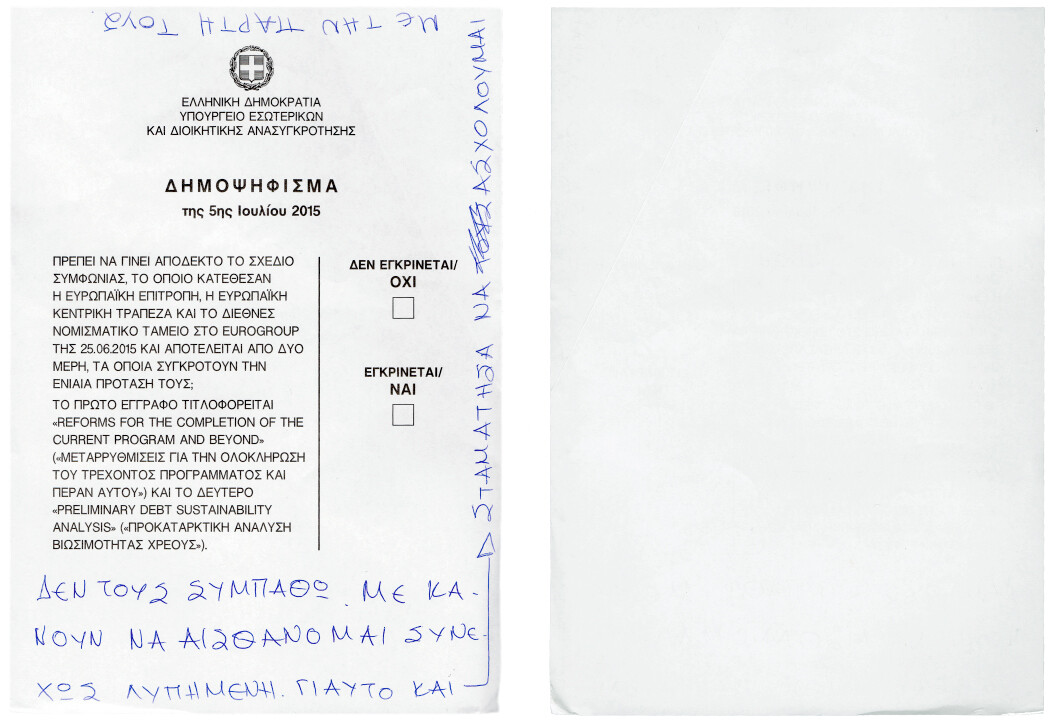 ΕΛΛΗΝΙΚΗ ΔΗΜΟΚΡΑΤΙΑ
ΥΠΟΥΡΓΕΙΟ ΕΣΩΤΕΡΙΚΩΝ
ΚΑΙ ΔΙΟΙΚΗΤΙΚΗΣ ΑΝΑΣΥΓΚΡΟΤΗΣΗΣ
ΔΗΜΟΨΗΦΙΣΜΑ
της 5ης Ιουλίου 2015
ΠΡΕΠΕΙ ΝΑ ΓΙΝΕΙ ΑΠΟΔΕΚΤΟ ΤΟ ΣΧΕΔΙΟ
ΣΥΜΦΩΝΙΑΣ, ΤΟ ΟΠΟΙΟ ΚΑΤΕΘΕΣΑΝ
Η ΕΥΡΩΠΑΪΚΗ ΕΠΙΤΡΟΠΗ, Η ΕΥΡΩΠΑΪΚΗ
ΚΕΝΤΡΙΚΗ ΤΡΑΠΕΖΑ ΚΑΙ ΤΟ ΔΙΕΘΝΕΣ
ΝΟΜΙΣΜΑΤΙΚΟ ΤΑΜΕΙΟ ΣΤΟ EUROGROUP
ΤΗΣ 25.06.2015 ΚΑΙ ΑΠΟΤΕΛΕΙΤΑΙ ΑΠΟ ΔΥΟ
ΜΕΡΗ, ΤΑ ΟΠΟΙΑ ΣΥΓΚΡΟΤΟΥΝ ΤΗΝ
ΕΝΙΑΙΑ ΠΡΟΤΑΣΗ ΤΟΥΣ;
ΤΟ ΠΡΩΤΟ ΕΓΓΡΑΦΟ ΤΙΤΛΟΦΟΡΕΙΤΑΙ
«REFORMS FOR THE COMPLETION OF THE
CURRENT PROGRAM AND BEYOND»
(«ΜΕΤΑΡΡΥΘΜΙΣΕΙΣ ΓΙΑ ΤΗΝ ΟΛΟΚΛΗΡΩΣΗ
ΤΟΥ ΤΡΕΧΟΝΤΟΣ ΠΡΟΓΡΑΜΜΑΤΟΣ ΚΑΙ
ΠΕΡΑΝ ΑΥΤΟΥ») ΚΑΙ ΤΟ ΔΕΥΤΕΡΟ
«PRELIMINARY DEBT SUSTAINABILITY
ANALYSIS» («ΠΡΟΚΑΤΑΡΚΤΙΚΗ ΑΝΑΛΥΣΗ
ΒΙΩΣΙΜΟΤΗΤΑΣ ΧΡΕΟΥΣ»).
ΔΕΝ ΕΓΚΡΙΝΕΤΑΙ/
ΟΧΙ
ΕΓΚΡΙΝΕΤΑΙ/
ΝΑΙ
ΔΕΝ ΤΟΥΣ ΣΥΜΠΑΘΩ. ΜΕ ΚΑ-
ΝΟΥΝ ΝΑ ΑΙΣΘΑΝΟΜΑΙ ΣΥΝΕ-
ΧΩΣ ΛΥΠΗΜΕΝΗ. ΓΙΑΥΤΟ ΚΑΙ
ΣΤΑΜΑΤΗΣΑ ΝΑ ΑΣΧΟΛΟΥΜΑΙ
ΜΕ ΤΗΝ ΠΑΡΤΗ ΤΟΥΣ